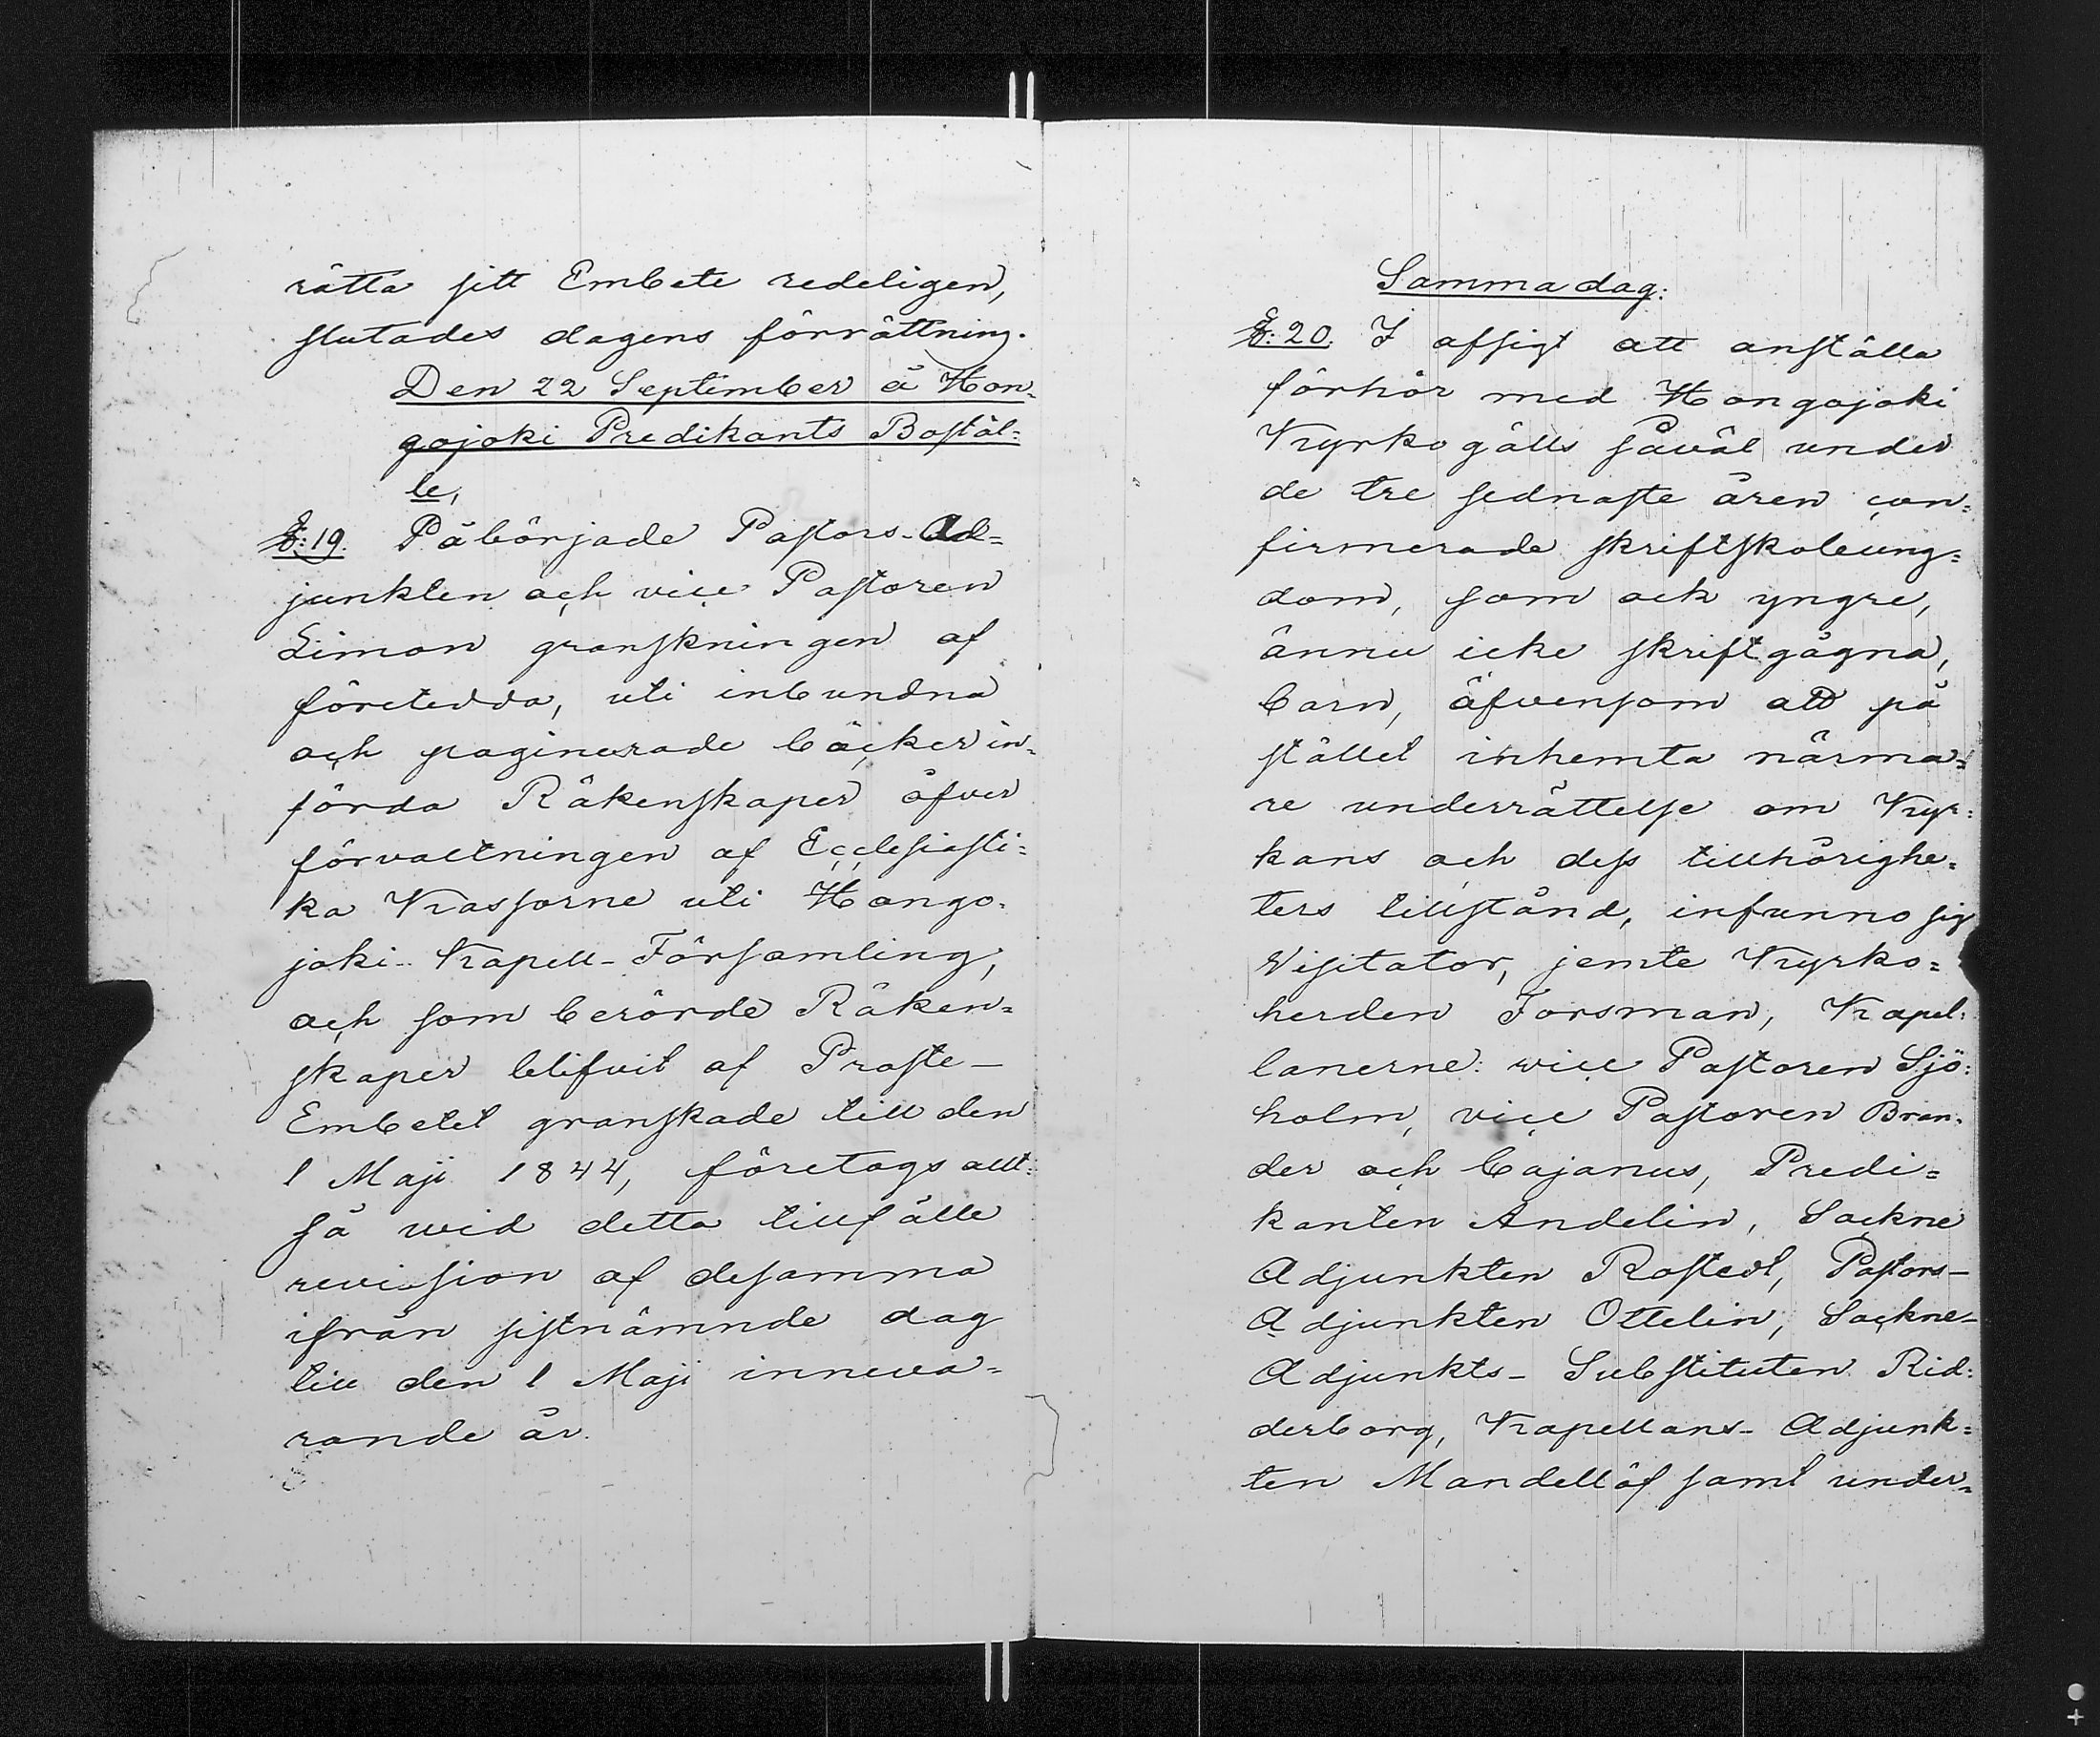 rätta sitt Embete redeligen,
slutades dagens förrättning.
Den 22 September å Hon-
gojoki Predikants Bostäl=
le,
§: 19. Påbörjade Pastors-Ad=
junkten och vice Pastoren
Simon granskningen af
företedda, uti inbundna
och paginerade böcker in-
förda Räkenskaper öfver
förvaltningen af Ecclesiasti=
ka Kassorne uti Hongo-
joki-Kapell-Församling,
och som berörde Räken=
skaper blifvit af Proste-
Embetet granskade till den
1 Maji 1844, företogs allt=
så wid detta tillfälle
revision af desamma
ifrån sistnämnde dag
till den 1 Maji inneva=
rande år.
Samma dag:
§: 20. I afsigt att anställa
förhör med Hongojoki
Kyrkogälls såväl under
de tre sednaste åren con=
firmerade skriftskoleung=
dom, som ock yngre,
ännu icke skriftgågna,
barn, äfvensom att på
stället inhemta närma=
re underrättelse om Kyr=
kans och dess tillhörighe=
ters tillstånd, infunno sig
Visitator, jemte Kyrko=
herden Forsman, Kapel=
lanerne: vice Pastoren Sjö=
holm, vice Pastoren Bran=
der och Cajanus, Predi=
kanten Andelin, Sockne
Adjunkten Rostedt, Pastors-
Adjunkten Ottelin, Sockne-
Adjunkts-Substituten Rid=
derborg, Kapellans-Adjunk=
ten Mandellöf samt under=